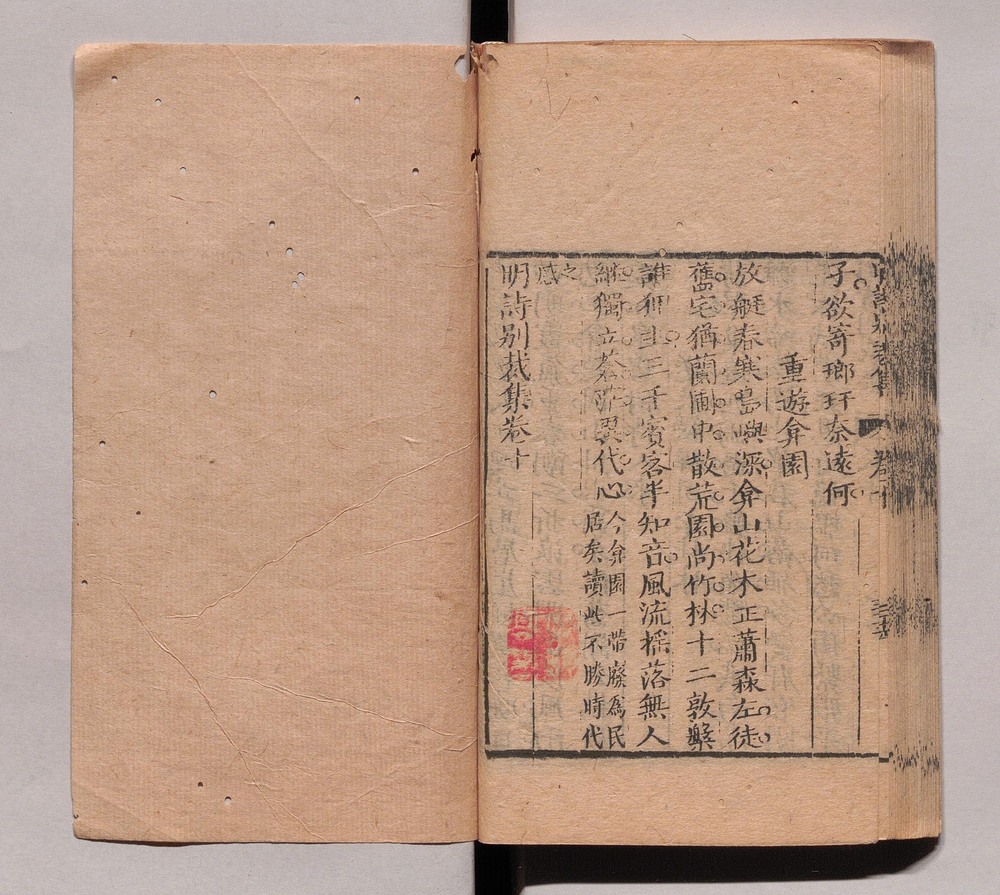 子欲寄瑯玕奈遠何
重遊弇園
放艇春寒島嶼深弇山花木正蕭森左徒
舊宅猶蘭圃中散荒園尚竹林十二敦槃
誰狎主三千賓客半知音風流搖落無人
繼獨立蒼茫異代心
今弇園一帶廢爲民
居矣讀此不勝時代
之
感
明詩别裁集卷十